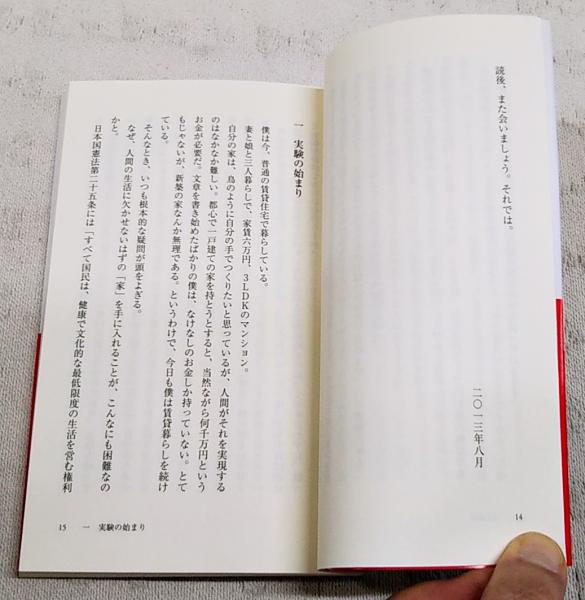 読後、また会いましょう。それでは。
二〇一三年八月
14
一 実験の始まり
僕は今、普通の賃貸住宅で暮らしている。
妻と娘と三人暮らしで、家賃六万円、3LDKのマンション。
自分の家は、鳥のように自分の手でつくりたいと思っているが、人間がそれを実現する
のはなかなか難しい。都心で一戸建ての家を持とうとすると、当然ながら何千万円という
お金が必要だ。文章を書き始めたばかりの僕は、なけなしのお金しか持っていない。とて
もじゃないが、新築の家なんか無理である。というわけで、今日も僕は賃貸暮らしを続け
ている。
そんなとき、いつも根本的な疑問が頭をよぎる。
なぜ、人間の生活に欠かせないはずの「家」を手に入れることが、こんなにも困難なの
かと。
日本国憲法第二十五条には「すべて国民は、健康で文化的な最低限度の生活を営む権利
15 一 実験の始まり